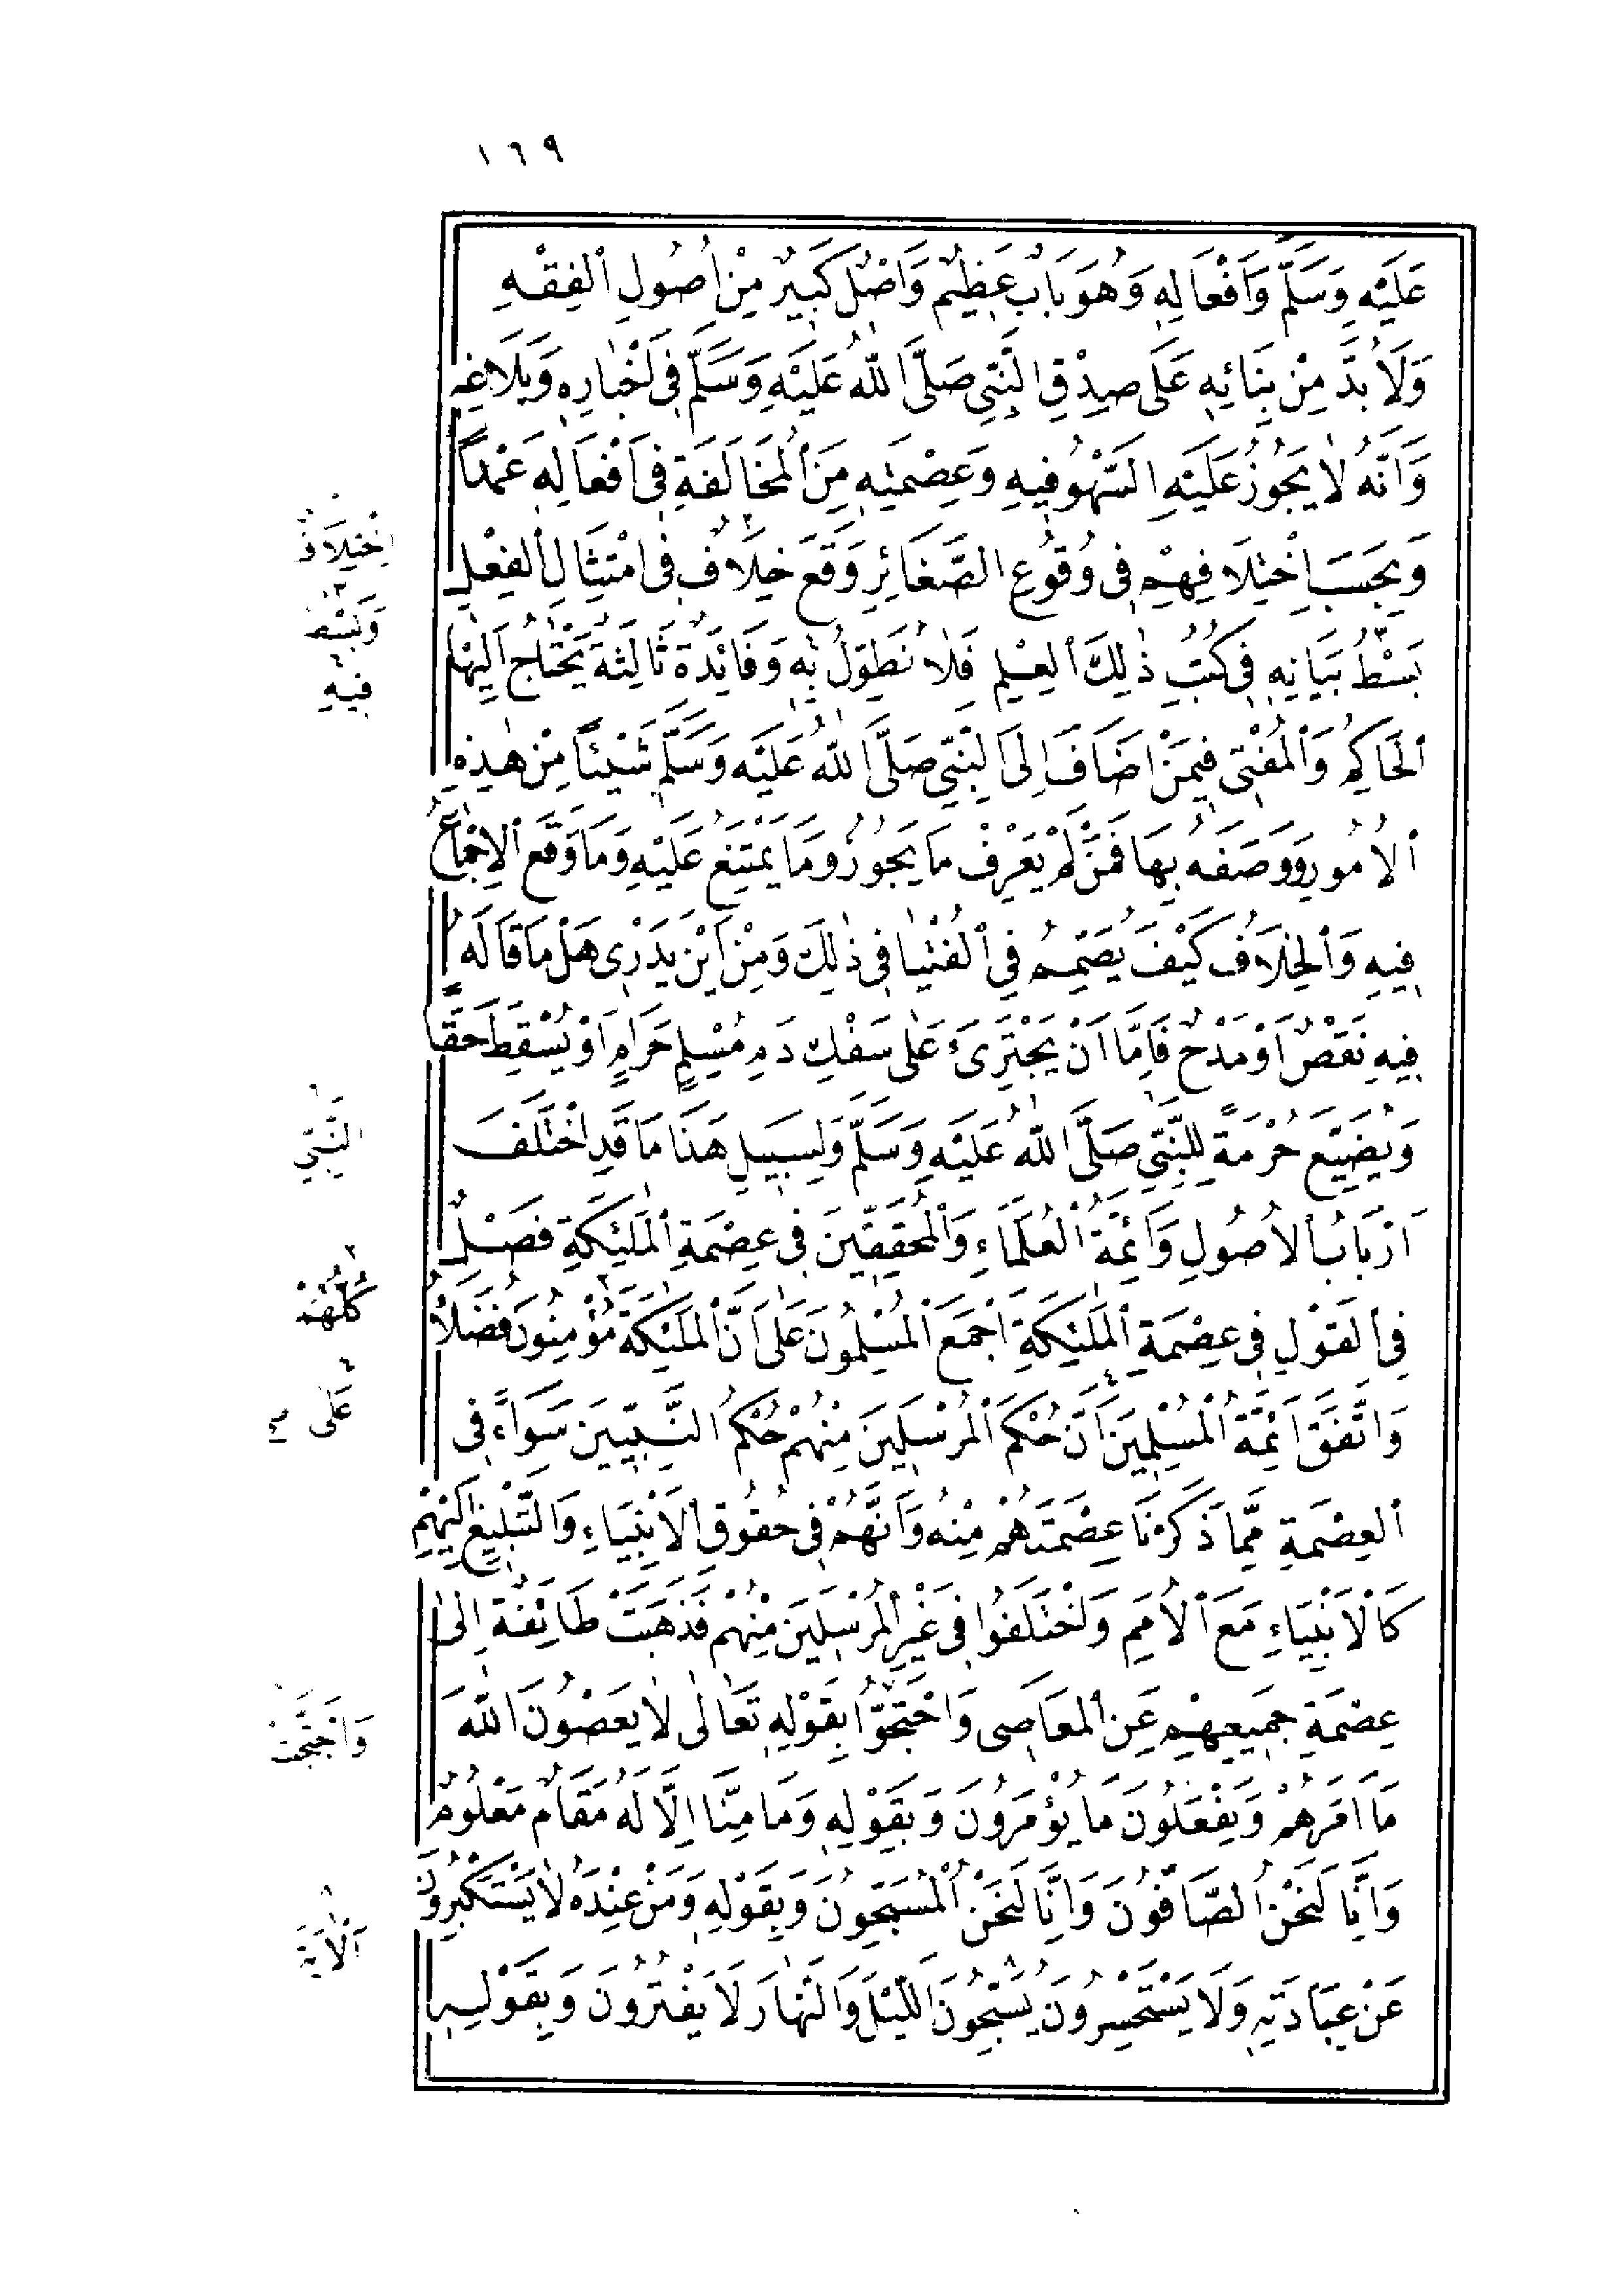 ١٦٩
عَلَيْهِ وَسَلَّمَ وَاَفْعَالِهِ وَهُوَ بَابٌ عَظِيمٌ وَاَصْلٌ كَبِيرٌ مِنْ اُصُولِ الْفِقْهِ
وَلَا بُدَّ مِنْ بِنَائِهِ عَلَى صِدْقِ النَّبِيِّ صَلَّى اللّٰهُ عَلَيْهِ وَسَلَّمَ فِى اَخْبَارِهِ وَبَلَاغِهِ
وَاَنَّهُ لَا يَجُوزُ عَلَيْهِ السَّهْوُ فِيهِ وَعِصْمَتِهِ مِنَ الْمُخَالَفَةِ فِى اَفْعَالِهِ عَمْداً
وَبِحَسَبِ اخْتِلَافِهِمْ فِى وُقُوعِ الصَّغَائِرِ وَقَعَ خِلَافٌ فِى امْتِثَالِ الْفِعْلِ
بَسْطُ بَيَانِهِ فِى كُتُبِ ذٰلِكَ الْعِلْمِ فَلَا نُطَوِّلُ بِهِ وَفَائِدَةٌ ثَالِثَةٌ يَحْتَاجُ اِلَيْهَا
الْحَاكِمُ وَالْمُفْتِى فِيمَنْ اَضَافَ اِلَى النَّبِيِّ صَلَّى اللّٰهُ عَلَيْهِ وَسَلَّمَ شَيْئاً مِنْ هٰذِهِ
الْاُمُورِ وَوَصَفَهُ بِهَا فَمَنْ لَمْ يَعْرِفْ مَا يَجُوزُ وَمَا يَمْتَنِعُ عَلَيْهِ وَمَا وَقَعَ الْاِجْمَاعُ
فِيهِ وَالْخِلَافُ كَيْفَ يُصَمِّمُ فِى الْفُتْيَا فِى ذٰلِكَ وَمِنْ اَيْنَ يَدْرِى هَلْ مَا قَالَهُ
فِيهِ نَقْصٌ اَوْ مَدْحٌ فَاِمَّا اَنْ يَجْتَرِئَ عَلَى سَفْكِ دَمِ مُسْلِمٍ حَرَامٍ اَوْ يُسْقِطَ حَقًّا
وَيُضَيِّعَ حُرْمَةً لِلنَّبِيِّ صَلَّى اللّٰهُ عَلَيْهِ وَسَلَّمَ وَلِسَبِيلِ هَذَا مَا قَدِ اخْتَلَفَ
اَرْبَابُ الْاُصُولِ وَاَئِمَّةُ الْعُلَمَاءِ وَالْمُحَقِّقِينَ فِى عِصْمَةِ الْمَلٰئِكَةِ فَصْلٌ
فِى الْقَوْلِ فِى عِصْمَةِ الْمَلٰئِكَةِ اَجْمَعَ الْمُسْلِمُونَ عَلَى اَنَّ الْمَلٰئِكَةَ مُؤْمِنُونَ فُضَلَاءُ
وَاتَّفَقَ اَئِمَّةُ الْمُسْلِمِينَ اَنَّ حُكْمَ الْمُرْسَلِينَ مِنْهُمْ حُكْمُ النَّبِيِّينَ سَوَاءً فِى
الْعِصْمَةِ مِمَّا ذَكَرْنَا عِصْمَتَهُمْ مِنْهُ وَاَنَّهُمْ فِى حُقُوقِ الْاَنْبِيَاءِ وَالتَّبْلِيغِ اِلَيْهِمْ
كَالْاَنْبِيَاءِ مَعَ الْاُمَمِ وَاخْتَلَفُوا فِى غَيْرِ الْمُرْسَلِينَ مِنْهُمْ فَذَهَبَتْ طَائِفَةٌ اِلٰى
عِصْمَةِ جَمِيعِهِمْ عَنِ الْمَعَاصِى وَاحْتَجُّوا بِقَوْلِهِ تَعَالٰى لَا يَعْصُونَ اللّٰهَ
مَا اَمَرَهُمْ وَيَفْعَلُونَ مَا يُؤْمَرُونَ وَبِقَوْلِهِ وَمَا مِنَّا اِلَّا لَهُ مَقَامٌ مَعْلُومٌ
وَاِنَّا لَنَحْنُ الصَّافُّونَ وَاِنَّا لَنَحْنُ الْمُسَبِّحُونَ وَبِقَوْلِهِ وَمَنْ عِنْدَهُ لَا يَسْتَكْبِرُونَ
عَنْ عِبَادَتِهِ وَلَا يَسْتَحْسِرُونَ يُسَبِّحُونَ اللَّيْلَ وَالنَّهَارَ لَا يَفْتُرُونَ وَبِقَوْلِهِ
اِخْتِلَافٌ
وَبَسْطُ
فِيهِ
النَّبِيِّ
كُلُّهُمْ
عَلٰى
وَاحْتَجَّتْ
الْاٰيَةَ